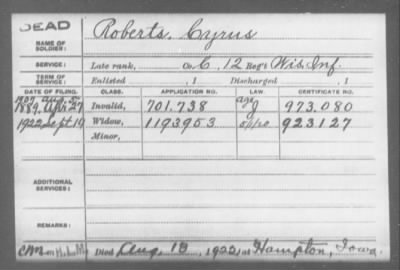 DEAD
NAME OF SOLDIER: Roberts, Cyrus
SERVICE: Late rank, Co. C, 12 Reg't Wis. Inf.
TERM OF SERVICE: Enlisted , 1 Discharged , 1
DATE OF FILING. CLASS. APPLICATION NO. LAW. CERTIFICATE NO.
1889, 27 Invalid, 701.738 973.080
1922, Sept 19 Widow, 1193953 5/1/20 923127
Minor,
ADDITIONAL SERVICES:
REMARKS:
Died Aug. 18, 1922, at Hampton, Iowa.